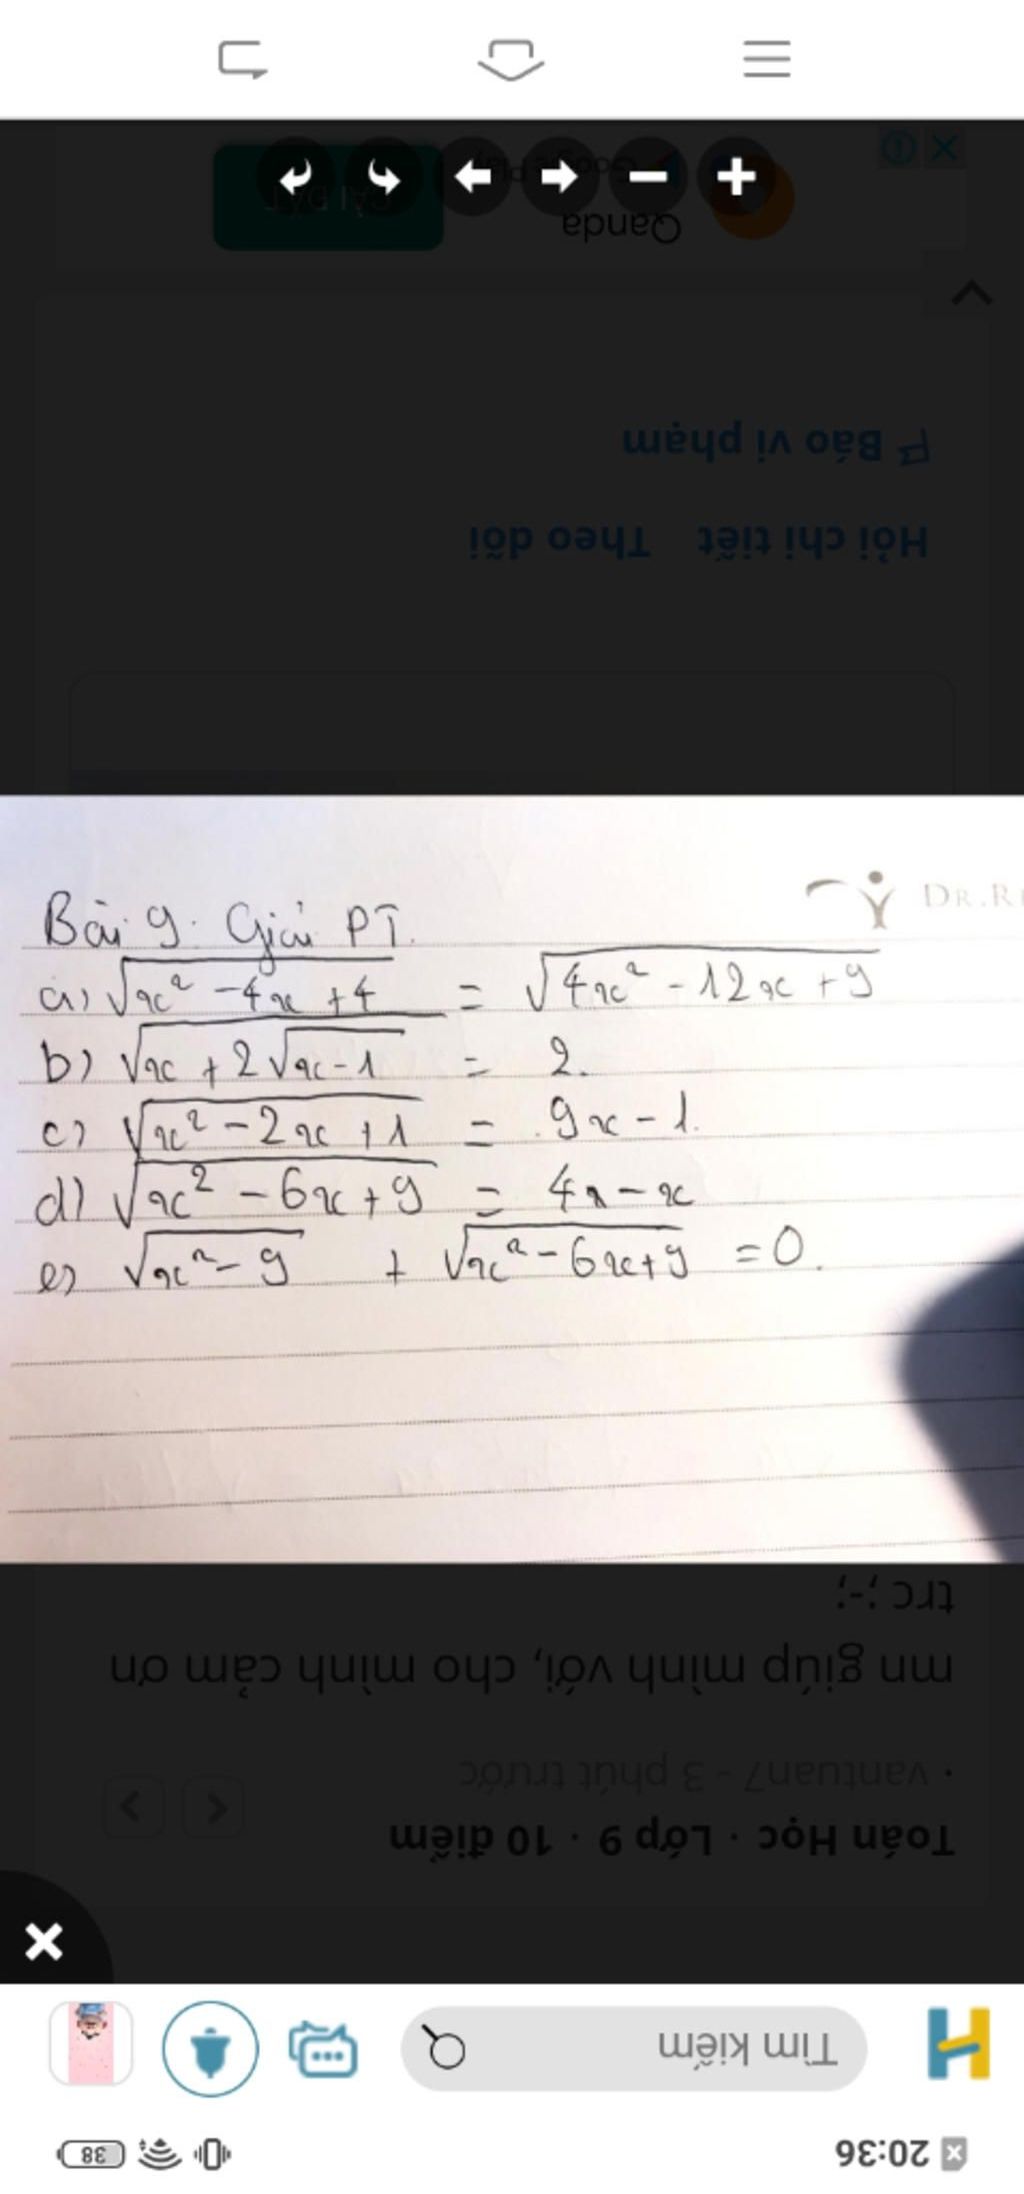 Qanda
Báo vi phạm
Hỏi chi tiết Theo dõi
DR.R
Bài 9. Giải PT.
a) √x² - 4x + 4 = √4x² - 12x + 9
b) √x + 2√x - 1 = 2.
c) √x² - 2x + 1 = 9x - 1.
d) √x² - 6x + 9 = 4 - x
e) √x² - 9 + √x² - 6x + 9 = 0.
mn giúp mình với, cho mình cảm ơn
trc ;-;
vantuan7 - 3 phút trước
Toán Học · Lớp 9 · 10 điểm
Tìm kiếm
20:36
38